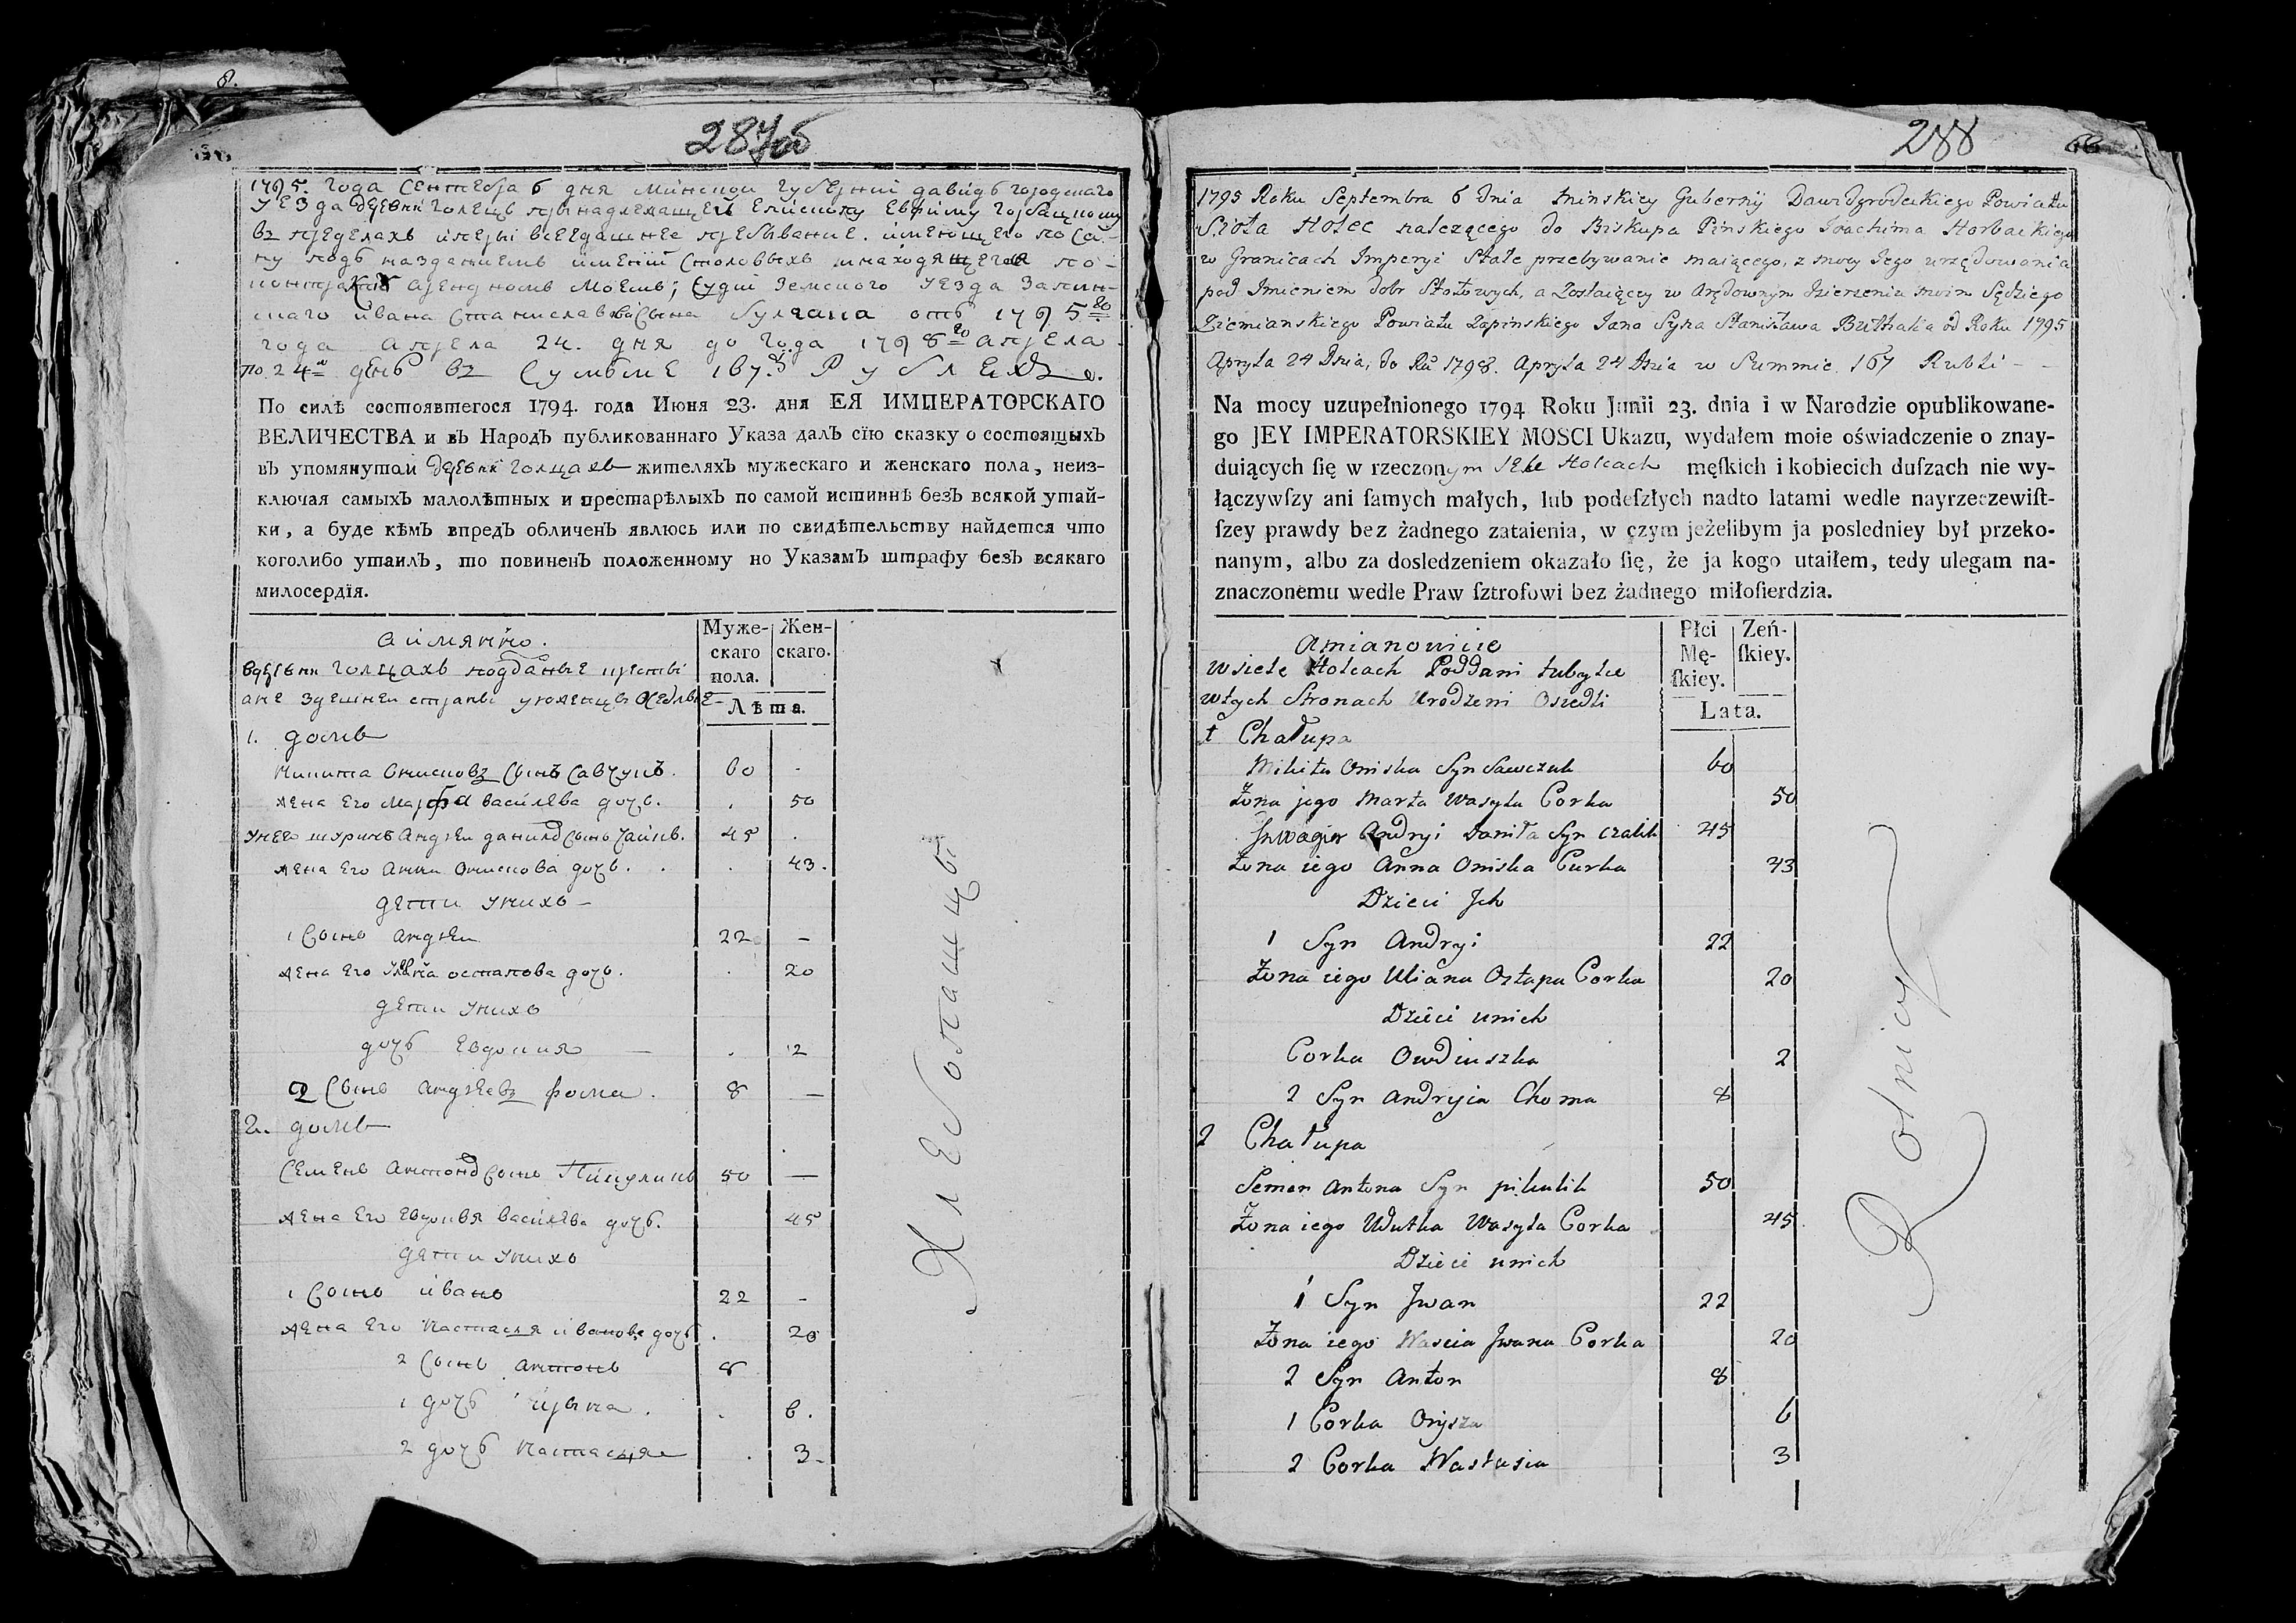 8.
287об
1795. года Сентебра 6 дня Минской губернии давидъ городскаго
уезда деевни голецъ принадлежащей епископу
въ пределахъ имперыи всегдашнее пребывание. имеющего по са-
ну подъ названиемъ имений столовыхъ инаходящегося по
арендномъ моемъ; Судьи Земского уезда Запин-
скаго ивана Станиславова Сына Булгака отъ 1795го
года апреля 24. дня до года 1798го апреля
по 24е день въ Суммъме 167. Рублехъ.
По силѣ состоявшегося 1794. года Июня 23. дня ЕЯ ИМПЕРАТОРСКАГО
ВЕЛИЧЕСТВА и въ Народѣ публикованнаго Указа далъ сїю сказку о состоящыхъ
въ упомянутой деревни голцахъ жителяхъ мужескаго и женскаго пола, неиз-
ключая самыхъ малолѣтныхъ и престарѣлыхъ по самой истиннѣ безъ всякой утай-
ки, а буде кѣмъ впредъ обличенъ явлюсь или по свидѣтельству найдется что
коголибо утаилъ, то повиненъ положенному но Указамъ штрафу безъ всякаго
милосердїя.
аимянно.
Муже-скаго пола.
Жен-скаго.
вдеревни голцахъ подданые кресты
ане здешнеи страны уроженцы оседлые
Лѣта.
1. домъ
микита Онисковъ Сынъ Савчукъ. 60 -
жена его марфа василева дочь. . 50
унего шуринъ андреи данилов Сынъ Чаликъ. 45 .
жена его анна онискова дочь. . 43.
дети унихъ -
1 Сынъ андреи 22 -
жена его Уляна остапова дочь. . 20
дети унихъ
дочь евдокия - . 2
2 Сынъ андреевъ фома. 8 -
2. домъ
Семенъ антонов Сынъ Пикуликъ 50 -
жена его евдокия василева дочь. 45
дети унихъ
1 Сынъ иванъ 22 -
жена его настасия иванова дочь . 20
2 Сынъ антонъ 8
1 дочь ирына. . 6.
2 дочь настасия . 3.
Хлебопашцы
288
66
1795 Roku Septembra 6 dnia Minskiey Gubernij Dawidgrodeckiego Powiatu
Sioła Holec należącego do Biskupa Pinskiego Joachima Horbackiego
w Granicach Imperyi Stałe przebywanie maiącego, z mocy Jego urzędowania
pod Imieniem dobr Stołowych, a Zostaiący w Arędownym dzierżeniu moim Sędziego
Ziemianskiego Powiatu Zapinskiego Jana Syna Stanisława Bułhaka od Roku 1795
Apryla 24 Dnia, do Ru 1798. Apryla 24 Dnia w Summie 167 Rubli - -
Na mocy uzupełnionego 1794 Roku Junii 23. dnia i w Narodzie opublikowane-
go JEY IMPERATORSKIEY MOSCI Ukazu, wydałem moie oświadczenie o znay-
duiących ſię w rzeczonym Siele Holcach męſkich i kobiecich duſzach nie wy-
łączywſzy ani ſamych małych, lub podeſzłych nadto latami wedle nayrzeczewiſt-
ſzey prawdy bez żadnego zataienia, w czym jeżelibym ja posledniey był przeko-
nanym, albo za dosledzeniem okazało ſię, że ja kogo utaiłem, tedy ulegam na-
znaczonemu wedle Praw ſztrofowi bez żadnego miłoſierdzia.
Amianowicie
Płci Mę-ſkiey.
Zeń-ſkiey.
w siele Holcach Poddani tubylce
wtych Stronach Urodzeni Osiedli
Lata.
1 Chałupa
Mikita Oniska Syn Sawczuk 60
Żona jego Marta Wasyla Corka 50
Szwagier Andryi Daniła Syn Czalik 45
Żona iego Anna Oniska Curka 43
Dzieci Jch
1 Syn Andryi 22
Żona iego Uliana Ostapa Corka 20
Dzieci unich
Corka Owdiuszka 2
2 Syn Andryia Choma 8
2 Chałupa
Semen Antona Syn pikulik 50
Żona iego Udutka Wasyla Corka 45
Dzieci unich
1 Syn Jwan 22
Żona iego Nascia Jwana Corka 20
2 Syn Anton 8
1 Corka Orysza 6
2 Corka Nastasia 3
Rolnicy